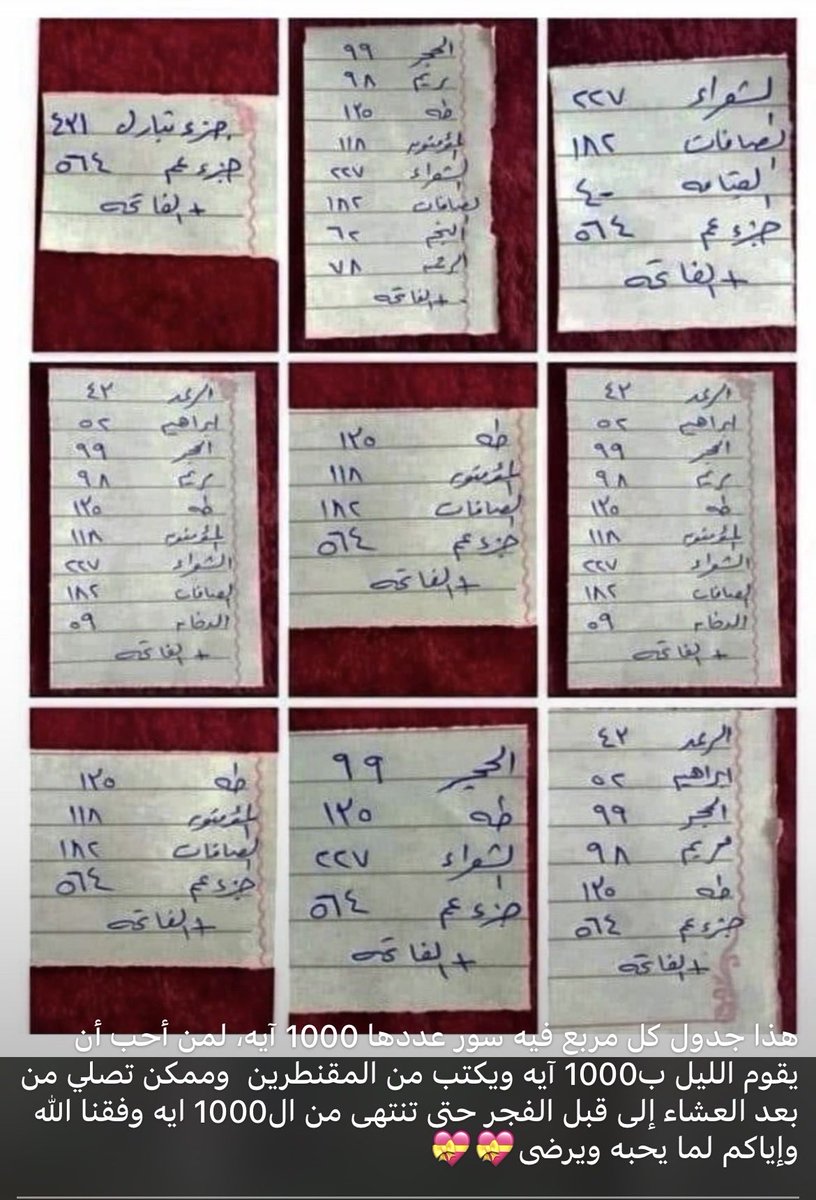 الشعراء ٢٢٧
الصافات ١٨٢
القيامه ٤٠
جزء عم ٥٦٤
+ الفاتحه
الحجر ٩٩
مريم ٩٨
طه ١٣٥
المؤمنون ١١٨
الشعراء ٢٢٧
الصافات ١٨٢
النجم ٦٢
الرحمن ٧٨
+ الفاتحه
جزء تبارك ٤٣١
جزء عم ٥٦٤
+ الفاتحه
الرعد ٤٣
ابراهيم ٥٢
الحجر ٩٩
مريم ٩٨
طه ١٣٥
المؤمنون ١١٨
الشعراء ٢٢٧
الصافات ١٨٢
الدخان ٥٩
+ الفاتحه
طه ١٣٥
المؤمنون ١١٨
الصافات ١٨٢
جزء عم ٥٦٤
+ الفاتحه
الرعد ٤٣
ابراهيم ٥٢
الحجر ٩٩
مريم ٩٨
طه ١٣٥
المؤمنون ١١٨
الشعراء ٢٢٧
الصافات ١٨٢
الدخان ٥٩
+ الفاتحه
الرعد ٤٣
ابراهيم ٥٢
الحجر ٩٩
مريم ٩٨
طه ١٣٥
جزء عم ٥٦٤
+ الفاتحه
الحجر ٩٩
طه ١٣٥
الشعراء ٢٢٧
جزء عم ٥٦٤
+ الفاتحه
طه ١٣٥
المؤمنون ١١٨
الصافات ١٨٢
جزء عم ٥٦٤
+ الفاتحه
هذا جدول كل مربع فيه سور عددها 1000 آيه، لمن أحب أن
يقوم الليل ب1000 آيه ويكتب من المقنطرين وممكن تصلي من
بعد العشاء إلى قبل الفجر حتى تنتهى من ال1000 ايه وفقنا الله
وإياكم لما يحبه ويرضى💝💝